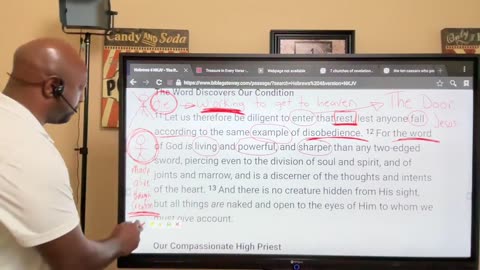 CANDY AND SODA
CANDIES
Hebrews 4 NKJV - The R...
Treasure in Every Verse
Webpage not available
7 churches of revelation
https://www.biblegateway.com/passage/?search=Hebrews%204&version=NKJV
The Word Discovers Our Condition
the
Working to get to heaven
The Door
Jesus
11 Let us therefore be diligent to enter that rest, lest anyone fall
according to the same example of disobedience. 12 For the word
of God is living and powerful, and sharper than any two-edged
sword, piercing even to the division of soul and spirit, and of
joints and marrow, and is a discerner of the thoughts and intents
of the heart. 13 And there is no creature hidden from His sight,
but all things are naked and open to the eyes of Him to whom we
must give account.
made
alive
Creation
Our Compassionate High Priest